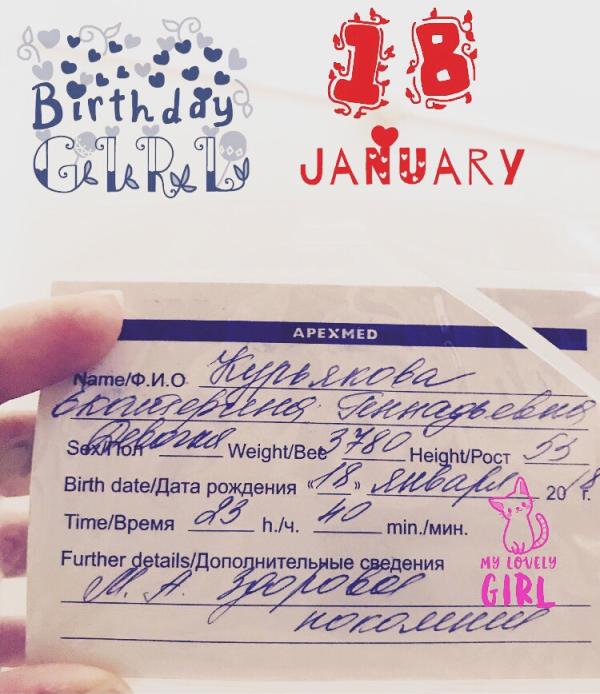 Birthday
GIRL
18
JANUARY
APEXMED
Name/Ф.И.О Курьякова
Екатерина Геннадьевна
Sex/Пол Девочка Weight/Вес 3780 Height/Рост 53
Birth date/Дата рождения «18» января 2018 г.
Time/Время 23 h./ч. 40 min./мин.
Further details/Дополнительные сведения
М. А. Здоровое
поколение
MY LOVELY
GIRL